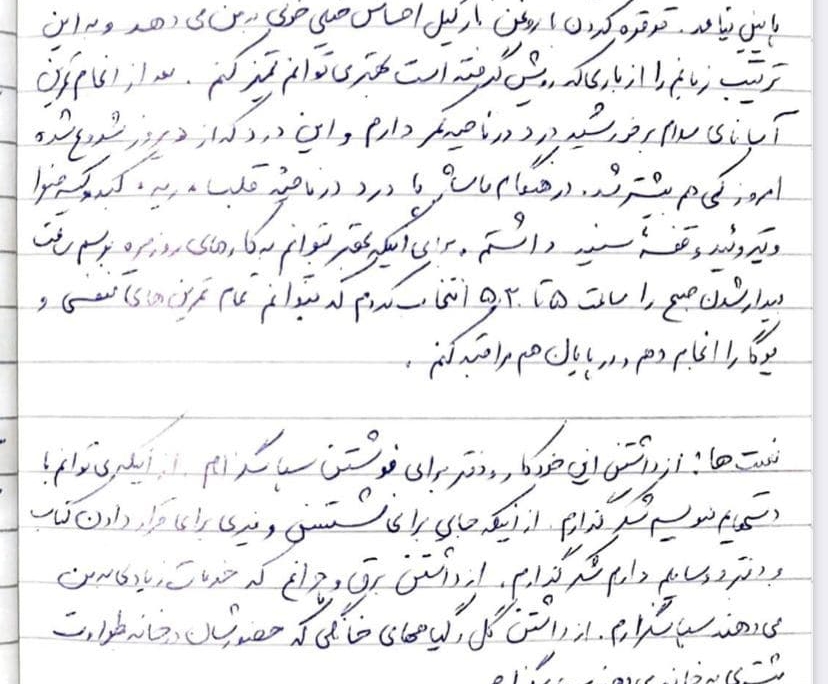 پایین نیامد. قرقره کردن با روغن نارگیل احساس خیلی خوبی به من می دهد و به این
ترتیب زبانم را از باری که رویش گرفته است بهتر می توانم تمیز کنم. بعد از انجام تمرین
آسانای سلام بر خورشید درد در ناحیه کمر دارم و این درد که از دیروز شروع شده
امروز کمی هم بیشتر شد. در هنگام ماساژ پا درد در ناحیه قلب، ریه، کبد و کیسه صفرا
و تیروئید و قفسه سینه داشتم. برای اینکه بهتر بتوانم به کارهای روزمره برسم ساعت
بیدار شدن صبح را ساعت ۵ تا ۵:۳۰ انتخاب کردم که بتوانم تمام تمرین های تنفسی و
یوگا را انجام دهم و در پایان هم مراقبه کنم.
نعمت ها: از داشتن این خودکار و دفتر برای نوشتن سپاسگزارم. از اینکه می توانم با
دستهایم بنویسم شکر گذارم. از اینکه جایی برای نشستن و میزی برای قرار دادن کتاب
و دفتر و وسایلم دارم شکر گذارم. از داشتن برق و چراغ که خدمات زیادی به من
می دهند سپاسگزارم. از داشتن گل و گیاههای خانگی که حضورشان در خانه طراوت
بیشتری به خانه می دهند